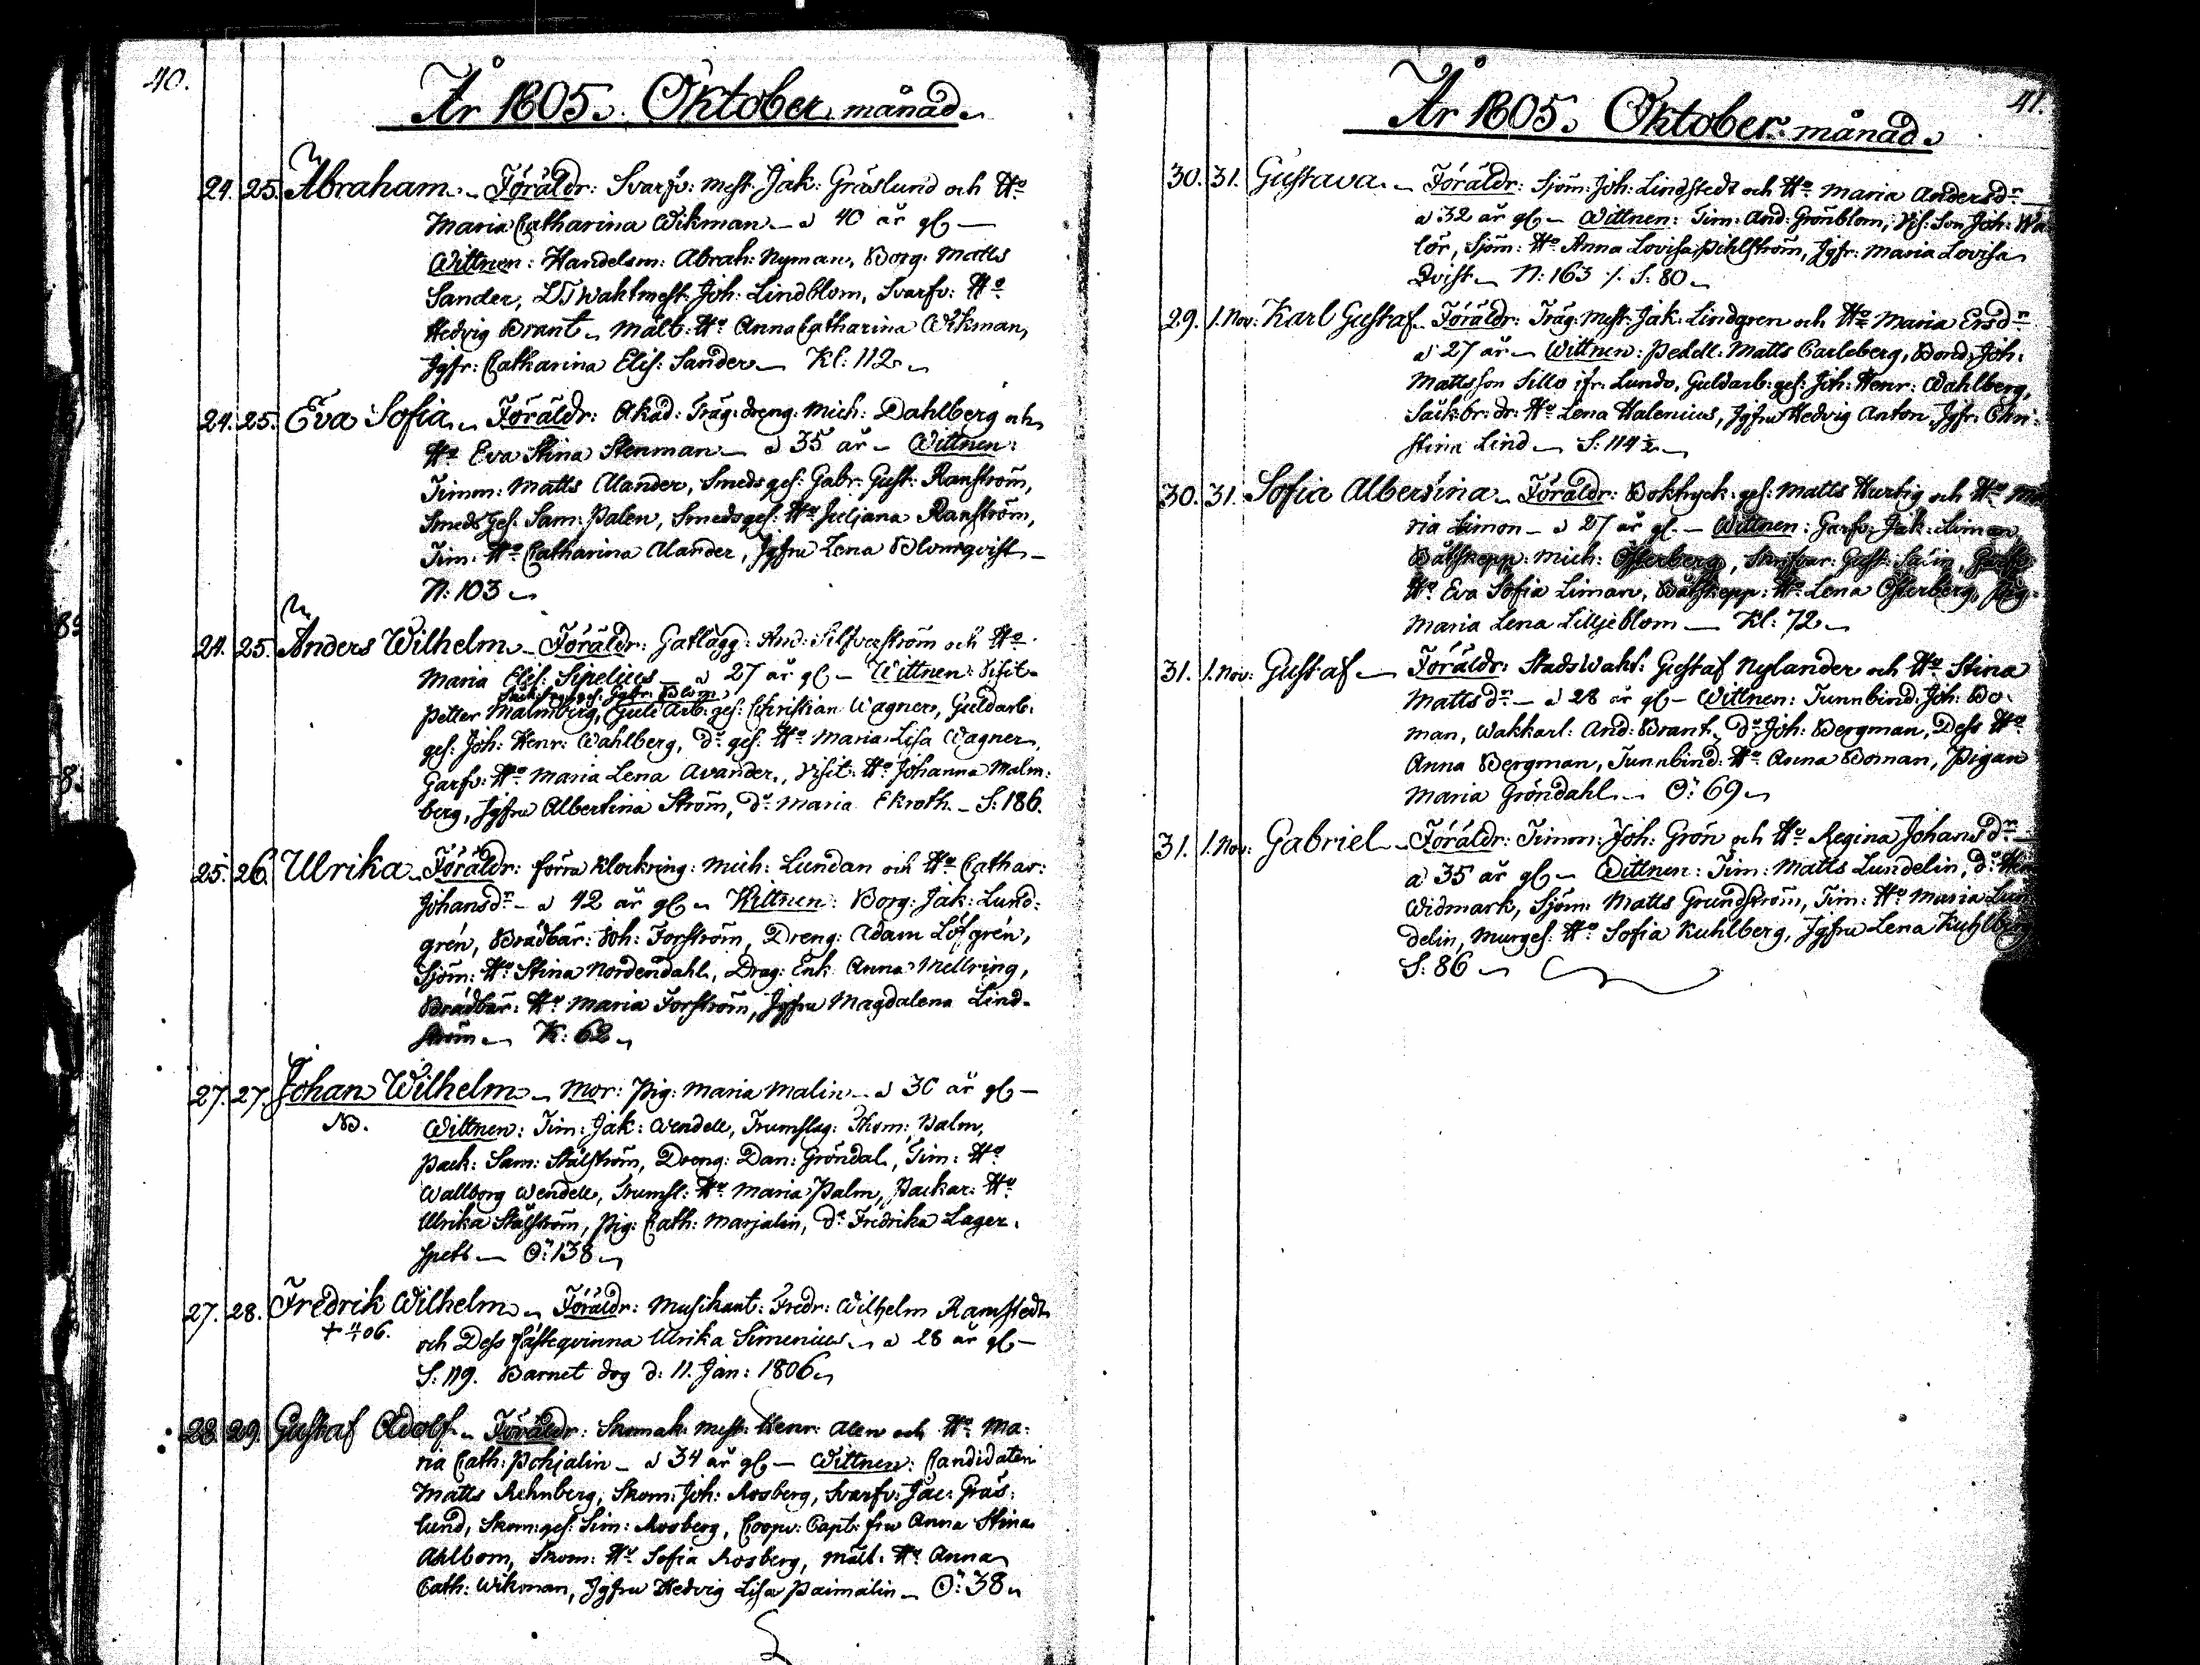 40.
År 1805. Oktober månad.
24. 25. Abraham. Föräldr: Svarfv: mest. Jak: Gräslund och H:o
Maria Catharina Wikman a 40 år gl
Wittnen: Handelsm: Abrah: Nyman, Borg: Matts
Sander, LT Waktmest. Joh: Lindblom, Svarfv: H:o
Hedvig Brant, Mält: H:o Anna Catharina Wikman,
Jgfr: Catharina Elis: Sander Kl: 112
24. 25. Eva Sofia. Föräldr: Akad: Träg: dreng: Mich: Dahlberg och
H:o Eva Stina Stenman a 35 år Wittnen:
Timm: Matts Alander, Smedsges: Gabr: Gust: Ranström,
Smeds ges: Sam: Palen, Smedsges: H:o Juljana Ranström,
Tim: H:o Catharina Alander, Jgfru Lena Blomqvist
N: 103
24. 25. Anders Wilhelm Föräldr: Gatlägg: And: Silfverström och H:o
Maria Elis: Sipelius a 27 år gl Wittnen: Visit.
Gabr: Blom
Petter Malmberg, Guld Arb: ges: Christian Wagner, Guldarb:
ges: Joh: Henr: Wahlberg, D:o ges: H:o Maria Lisa Wagner,
Garfv: H:o Maria Lena Avander, Visit: H:o Johanna Malm:
berg, Jgfru Albertina Ström, D:o Maria Ekroth S: 186.
25. 26. Ulrika Föräldr: förra Klockring: Mich: Lundan och H:o Cathar:
Johansd:r a 42 år gl Wittnen: Borg: Jak: Lund:
grén, Brädbär: Joh: Forström, Dreng: Adam Löfgrén,
Sjöm: H:o Stina Nordendahl, Drag: Enk. Anna Mellring,
Brädbär: H:o Maria Forström, Jgfru Magdalena Lind-
ström K: 62
27. 27. Johan Wilhelm Mor: Pig: Maria Malin a 30 år gl
NB. Wittnen: Tim: Jak: Wendell, Trumslag: Thom: Palm,
Pack: Sam: Stålström, Dreng: Dan: Gröndal, Tim: H:o
Wallborg Wendell, Trumsl: H:o Maria Palm, Packar: H:o
Ulrika Stålström, Pig: Cath: Marjalin, D:o Fredrika Lager.
spets Ö: 138
27. 28. Fredrik Wilhelm Föräldr: Musikant: Fredr: Wilhelm Ramstedt
och Dess fästeqvinna Ulrika Simenius a 28 år gl
S: 119. Barnet dog d: 11. Jan: 1806
28. 29. Gustaf Adolf Föräldr: Skomak: mest: Henr: Alen och H:o Ma:
ria Cath: Pohjalin a 34 år gl Wittnen: Candidaten
Matts Rehnberg, Skom: Joh: Rosberg, Svarfv: Jac: Gräs:
lund, Skom: ges: Sim: Rosberg, Coopv: Capt: fru Anna Stina
Ahlbom, Skom: H:o Sofia Rosberg, Mält: H:o Anna
Cath: Wikman, Jgfru Hedvig Lisa Paimalin Ö: 38
41.
År 1805. Oktober månad.
30. 31. Gustava. Föräldr: Sjöm: Joh: Lindstedt och H:o Maria Andersd:r
a 32 år gl Wittnen: Tim: And: Grönblom, Joh:
lör, Sjöm: H:o Anna Lovisa Pihlström, Jgfr: Maria Lovisa
Qvist N: 163 /. S: 80
29. 1. Nov: Karl Gustaf Föräldr: Träg: mest: Jak: Lindgren och H:o Maria Ersd:r
a 27 år Wittnen: Pedell: Matts Carleberg, Bond: Joh:
Mattsson Sillo ifr: Lundo, Guldarb: ges: Joh: Henr: Wahlberg,
Säckbr: dr: H:o Lena Halenius, Jgfru Hedvig Anton, Jgfr: Chri:
stina Lind S: 114 ½
30. 31. Sofia Albertina Föräldr: Boktryck: ges: Matts Hurtig och H:o Ma
ria Limon a 27 år gl Wittnen: Garfv: Jak: Liman,
Båtskepp: Mich: Österberg, Gust:
H:o Eva Sofia Liman, Båtskepp: H:o Lena Österberg, Pig:
Maria Lena Liljeblom Kl: 72
31. 1. Nov: Gustaf Föräldr: Stadswakt: Gustaf Nylander och H:o Stina
Mattsd:r a 28 år gl Wittnen: Tunnbind: Joh: Bo.
man, Wakkarl: And: Brant, D:o Joh: Bergman, Dess H:o
Anna Bergman, Tunnbind: H:o Anna Boman, Pigan
Maria Gröndahl Ö: 69
31. 1. Nov: Gabriel Föräldr: Timm: Joh: Grön och H:o Regina Johansd:r
a 35 år gl Wittnen: Tim: Matts Lundelin, D:o
Widmark, Sjöm: Matts Grundström, Tim: H:o Maria Lun
delin, Murges: H:o Sofia Kuhlberg, Jgfru Lena Kuhlberg
S: 86